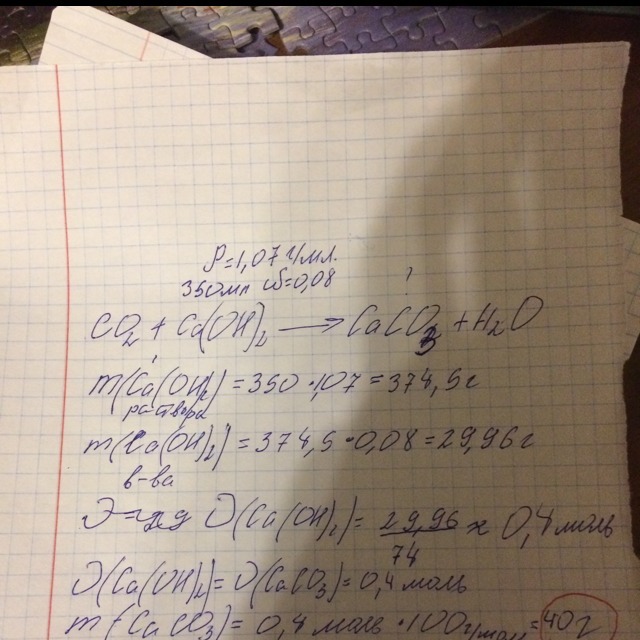 ρ=1,07 г/мл.
350мл ω=0,08 ?
CO2 + Ca(OH)2 → CaCO3 + H2O
m(Ca(OH)2) = 350 · 1,07 = 374,5 г
раствора
m(Ca(OH)2) = 374,5 · 0,08 = 29,96 г
в-ва
υ(Ca(OH)2) = 29,96/74 ≈ 0,4 моль
υ(Ca(OH)2) = υ(CaCO3) = 0,4 моль
m(CaCO3) = 0,4 моль · 100 г/моль = 40 г